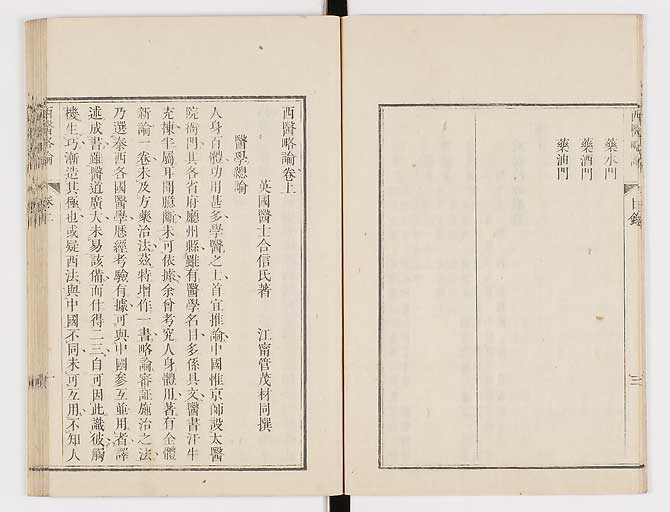 藥水門
藥酒門
藥油門
西醫略論
目錄
三
西醫略論卷上
英國醫士合信氏著 江甯管茂材同撰
醫學總論
人身百體功用甚多學醫之士首宜推論中國惟京師設太醫
院衙門其各省府廳州縣雖有醫學名目多係具文醫書汗牛
充棟半屬耳聞臆斷未可依據余曾考究人身體用著有全體
新論一卷未及方藥治法茲特增作一書略論審証施治之法
乃選泰西各國醫學歷經考驗有據可與中國參互並用者譯
述成書雖醫道廣大未易該備而什得二三自可因此識彼觸
機生巧漸造其極也或疑西法與中國不同未可互用不知人
西醫略論
卷上
一